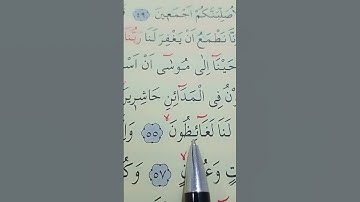 صَلِّبَنَّكُمْ اَجْمَعٖينَ ﴿٤٩﴾
نَّا نَطْمَعُ اَنْ يَغْفِرَ لَنَا رَبُّنَا
حَيْنَٓا اِلٰى مُوسٰٓى اَنْ اَسْ
نُ فِى الْمَدَٓائِنِ حَاشِرٖينَ
لَنَا لَغَٓائِظُونَ ﴿٥٥﴾ وَاِ
تٍ وَعُيُونٍ ﴿٥٧﴾ وَكُ